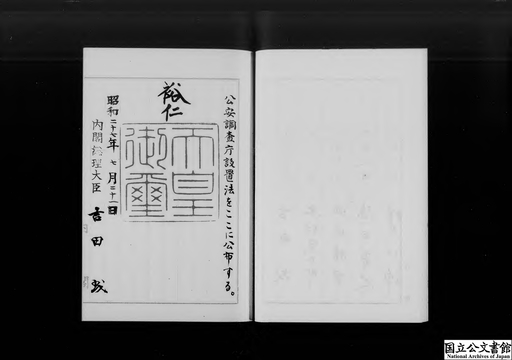 公安調査庁設置法をここに公布する。
裕仁
天皇御璽
昭和二十七年七月二十一日
内閣総理大臣 吉田茂
国立公文書館
National Archives of Japan